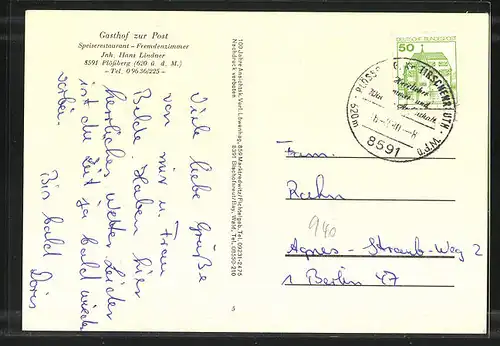 Gasthof zur Post
Speiserestaurant – Fremdenzimmer
Inh. Hans Lindner
8591 Plößberg (620 ü. d. M.)
– Tel. 0 96 36/225 –
Viele liebe Grüße
von mir u. Frau
Bilde. Haben hier
herrliches Wetter. Leider
ist die Zeit ja bald wieder
vorbei.
Bis bald
Doris
100 Jahre Ansichtsk.Verl. Löwenhag, 859 Marktredwitz/Fichtelgeb. Tel. 09231-2475
Nachdruck verboten 8391 Bischofsreut/Bay. Wald, Tel. 08550-210
5
50
DEUTSCHE BUNDESPOST
TIRSCHENREUTH
620m
8591
Fam.
Rahn
940
Agnes - Straub-Weg 2
1 Berlin 47